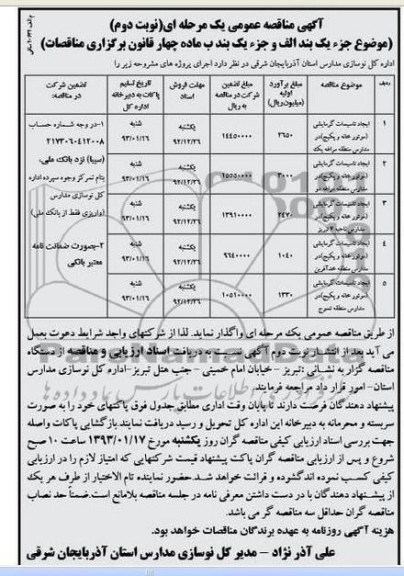 آگهی مناقصه عمومی یک مرحله ای(نوبت دوم)
(موضوع جزء یک بند الف و جزء یک بند ب ماده چهار قانون برگزاری مناقصات)
اداره کل نوسازی مدارس استان آذربایجان شرقی در نظر دارد اجرای پروژه های مشروحه زیر را
ردیف موضوع مناقصه مبلغ برآورد اولیه (میلیون ریال) مبلغ تضمین شرکت در مناقصه به ریال مهلت فروش اسناد تاریخ تسلیم پاکات به دبیرخانه اداره کل تضمین شرکت در مناقصه:
۱ ایجاد تاسیسات گرمایشی (موتورخانه و پکیج)در مدارس منطقه مراغه یک ۲۶۵۰ ۱۴۴۵۰۰۰۰ یکشنبه ۹۲/۱۲/۲۶ شنبه ۹۳/۰۱/۱۶
۲ ایجاد تاسیسات گرمایشی (موتورخانه و پکیج)در مدارس منطقه مراغه دو ۳۰۰۰ ۱۵۵۰۰۰۰۰ یکشنبه ۹۲/۱۲/۲۶ شنبه ۹۳/۰۱/۱۶
۳ ایجاد تاسیسات گرمایشی (موتورخانه و پکیج)در مدارس ناحیه ۴ تبریز ۲۴۷۰ ۱۳۹۱۰۰۰۰ یکشنبه ۹۲/۱۲/۲۶ شنبه ۹۳/۰۱/۱۶
۴ ایجاد تاسیسات گرمایشی (موتورخانه و پکیج)در مدارس منطقه خداآفرین ۱۰۴۰ ۹۶۴۰۰۰۰ یکشنبه ۹۲/۱۲/۲۶ شنبه ۹۳/۰۱/۱۶
۵ ایجاد تاسیسات گرمایشی (موتورخانه و پکیج)در مدارس منطقه تسوج ۱۳۳۰ ۱۰۵۱۰۰۰۰ یکشنبه ۹۲/۱۲/۲۶ شنبه ۹۳/۰۱/۱۶
۱-در وجه شماره حساب
۲۱۷۳۰۶۰۴۱۲۰۰۸
(سیبا) نزد بانک ملی،
بنام تمرکز وجوه سپرده اداره
کل نوسازی مدارس
(واریزی فقط از بانک ملی)
۲-بصورت ضمانت نامه
معتبر بانکی
از طریق مناقصه عمومی یک مرحله ای واگذار نماید. لذا از شرکتهای واجد شرایط دعوت بعمل
می آید بعد از انتشار نوبت دوم آگهی نسبت به دریافت اسناد ارزیابی و مناقصه از دستگاه
مناقصه گزار به نشانی :تبریز - خیابان امام خمینی - جنب هتل تبریز-اداره کل نوسازی مدارس
استان- امور قرار داد مراجعه فرمایند.
پیشنهاد دهندگان فرصت دارند تا پایان وقت اداری مطابق جدول فوق پاکتهای خود را به صورت
سربسته و محرمانه به دبیرخانه این اداره کل تحویل و رسید دریافت نمایند.بازگشایی پاکات واصله
جهت بررسی اسناد ارزیابی کیفی مناقصه گران روز یکشنبه مورخ ۱۳۹۳/۰۱/۱۷ ساعت ۱۰ صبح
شروع و پس از ارزیابی مناقصه گران پاکت پیشنهاد قیمت شرکتهایی که امتیاز لازم را در ارزیابی
کیفی کسب نموده اندگشوده و قرائت خواهد شد.حضور نماینده تام الاختیار از طرف هر یک
از پیشنهاد دهندگان با در دست داشتن معرفی نامه در جلسه مناقصه بلامانع است.ضمناً حد نصاب
مناقصه گران حداقل سه مناقصه گر می باشد.
هزینه آگهی روزنامه به عهده برندگان مناقصات خواهد بود.
علی آذر نژاد - مدیر کل نوسازی مدارس استان آذربایجان شرقی